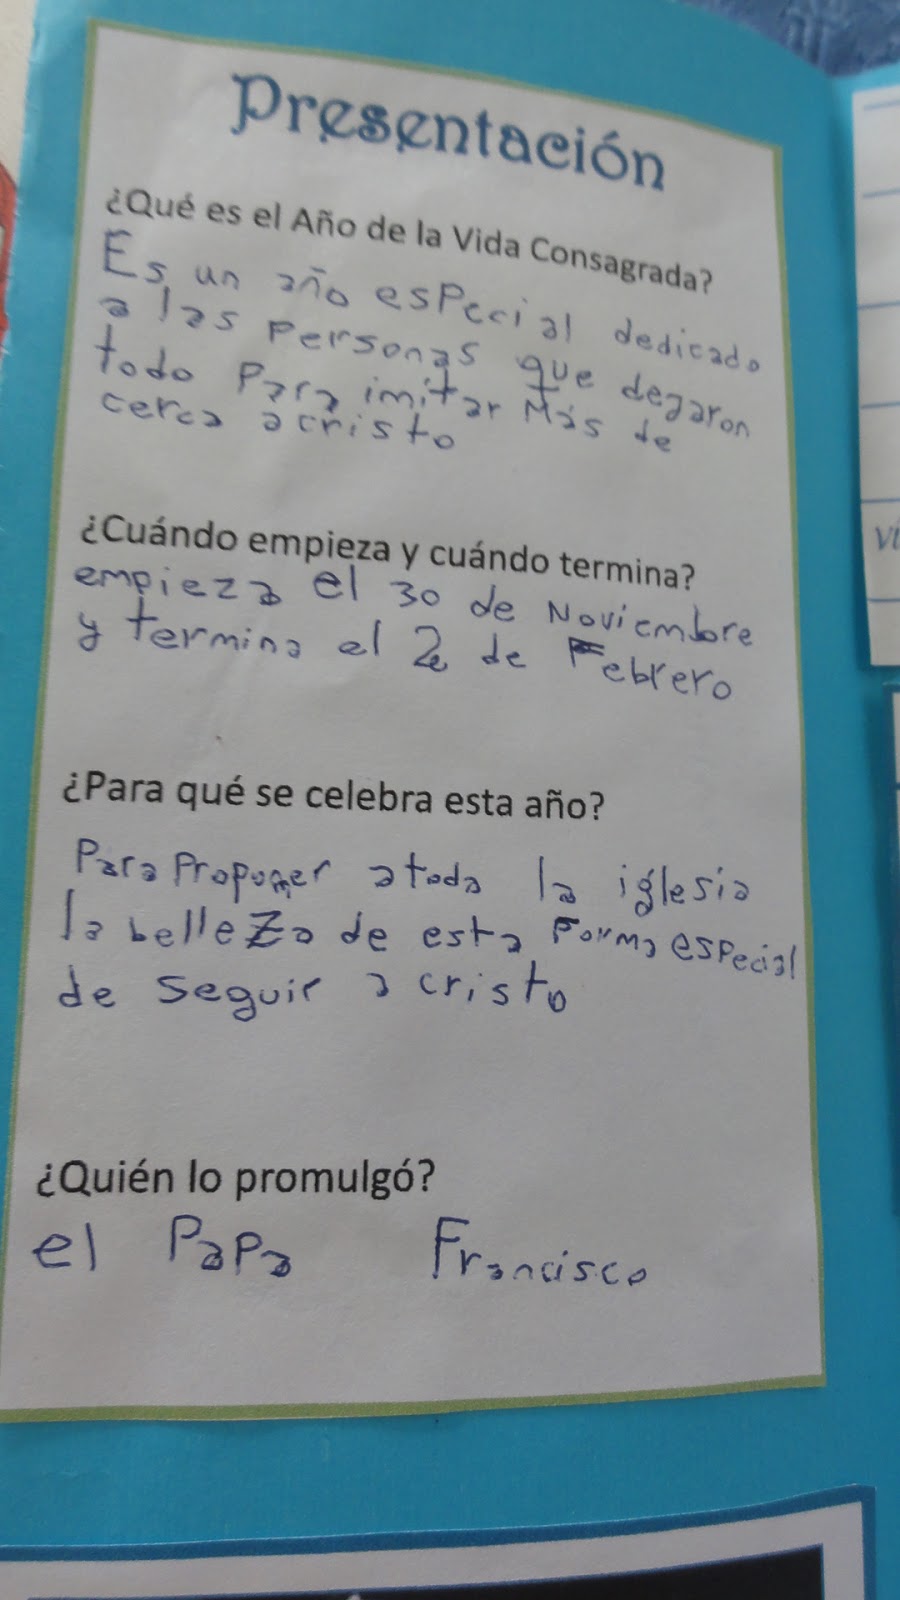 Presentación
¿Qué es el Año de la Vida Consagrada?
Es un año especial dedicado
a las Personas que degaron
todo Para imitar Más de
cerca a cristo
¿Cuándo empieza y cuándo termina?
empieza el 30 de Noviembre
y termina el 2 de Febrero
¿Para qué se celebra esta año?
Para Proponer a toda la iglesia
la belleza de esta Forma especial
de seguir a cristo
¿Quién lo promulgó?
el Papa Francisco